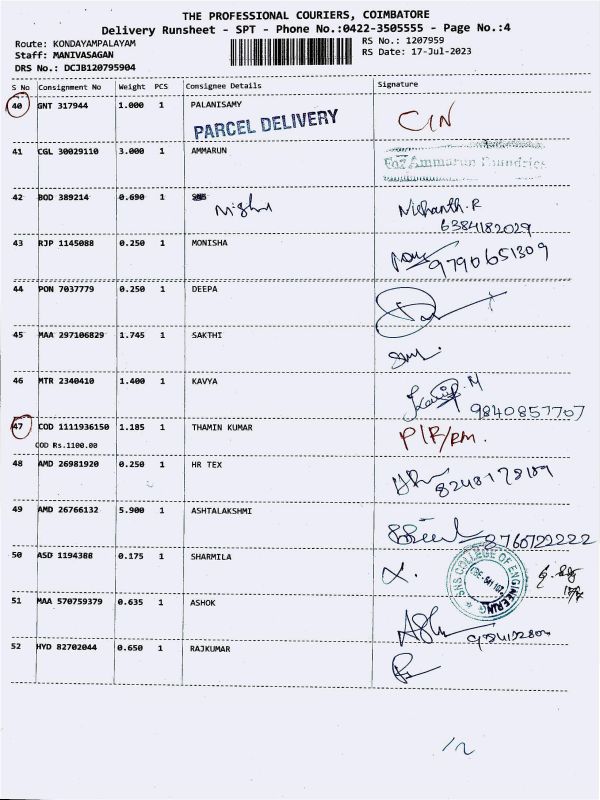 THE PROFESSIONAL COURIERS, COIMBATORE
Delivery Runsheet - SPT - Phone No.:0422-3505555 - Page No.:4
Route: KONDAYAMPALAYAM
RS No.: 1207959
Staff: MANIVASAGAN
RS Date: 17-Jul-2023
DRS No.: DCJB120795904
S No Consignment No Weight PCS Consignee Details Signature
40 GNT 317944 1.000 1 PALANISAMY
PARCEL DELIVERY
CIN
41 CGL 30029110 3.000 1 AMMARUN
For Ammarun Foundries
42 BOD 389214 0.690 1
Nishanth.R
6384182029
43 RJP 1145088 0.250 1 MONISHA
9790651309
44 PON 7037779 0.250 1 DEEPA
45 MAA 297106829 1.745 1 SAKTHI
46 MTR 2340410 1.400 1 KAVYA
9840857707
47 COD 1111936150 1.185 1 THAMIN KUMAR
COD Rs.1100.00
P/R/RM.
48 AMD 26981920 0.250 1 HR TEX
49 AMD 26766132 5.900 1 ASHTALAKSHMI
8760722222
50 ASD 1194388 0.175 1 SHARMILA
SNS COLLEGE OF ENGINEERING
51 MAA 570759379 0.635 1 ASHOK
52 HYD 82702044 0.650 1 RAJKUMAR